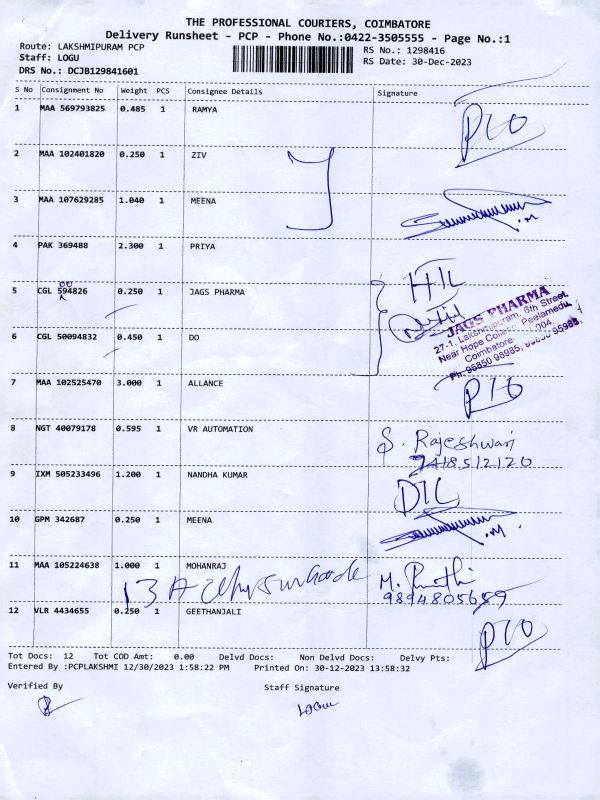 THE PROFESSIONAL COURIERS, COIMBATORE
Delivery Runsheet - PCP - Phone No.:0422-3505555 - Page No.:1
Route: LAKSHMIPURAM PCP
RS No.: 1298416
Staff: LOGU
RS Date: 30-Dec-2023
DRS No.: DCJB129841601
S No Consignment No Weight PCS Consignee Details Signature
1 MAA 569793825 0.485 1 RAMYA
2 MAA 102401820 0.250 1 ZIV
3 MAA 107629285 1.040 1 MEENA
4 PAK 369488 2.300 1 PRIYA
5 CGL 594826 0.250 1 JAGS PHARMA
00
JAGS PHARMA
27-1, Lakshmipuram, 6th Street,
Near Hope College, Peelamedu,
Coimbatore- 004.
Ph: 95850 98985, 95850 95985
6 CGL 50094832 0.450 1 DO
7 MAA 102525470 3.000 1 ALLANCE
8 NGT 40079178 0.595 1 VR AUTOMATION
S. Rajeshwari
7418512120
9 IXM 505233496 1.200 1 NANDHA KUMAR
10 GPM 342687 0.250 1 MEENA
11 MAA 105224638 1.000 1 MOHANRAJ
13 A
9894805659
12 VLR 4434655 0.250 1 GEETHANJALI
Tot Docs: 12 Tot COD Amt: 0.00 Delvd Docs: Non Delvd Docs: Delvy Pts:
Entered By :PCPLAKSHMI 12/30/2023 1:58:22 PM Printed On: 30-12-2023 13:58:32
Verified By
Staff Signature